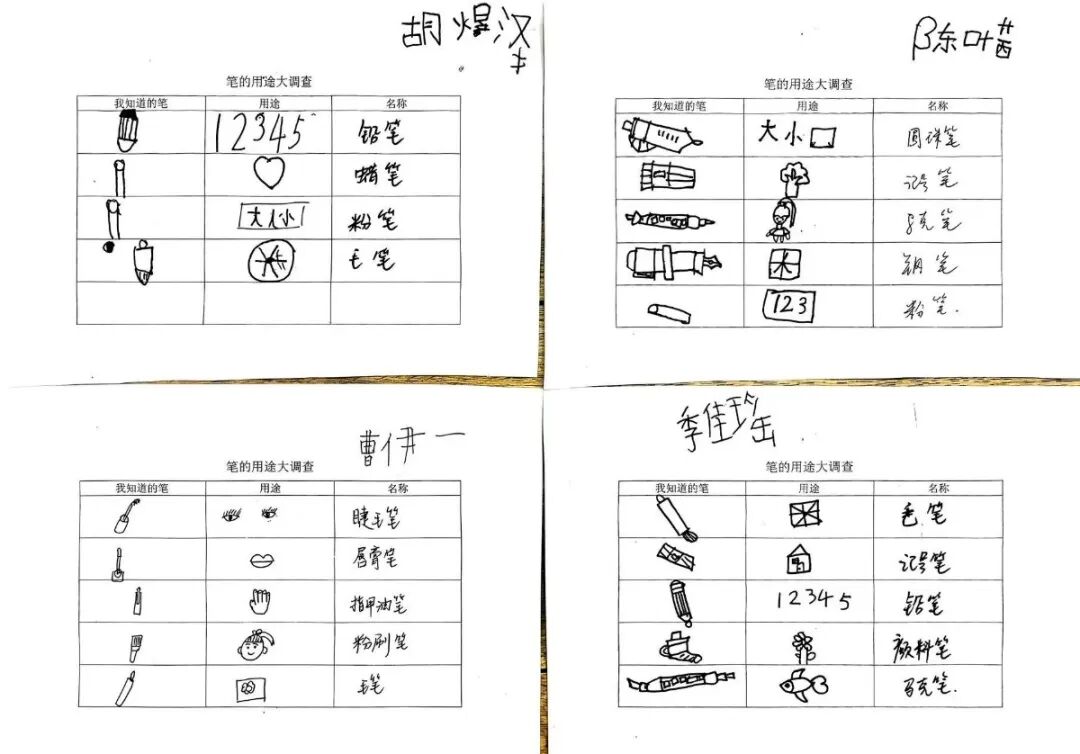 胡焊洋
笔的用途大调查
我知道的笔 用途 名称
12345 铅笔
蜡笔
大小 粉笔
毛笔
陈叶茜
笔的用途大调查
我知道的笔 用途 名称
大小 圆珠笔
记号笔
马克笔
钢笔
123 粉笔.
曹伊一
笔的用途大调查
我知道的笔 用途 名称
睫毛笔
唇膏笔
指甲油笔
粉刷笔
毛笔
季佳瑶
笔的用途大调查
我知道的笔 用途 名称
毛笔
记号笔
12345 铅笔
颜料笔
马克笔.